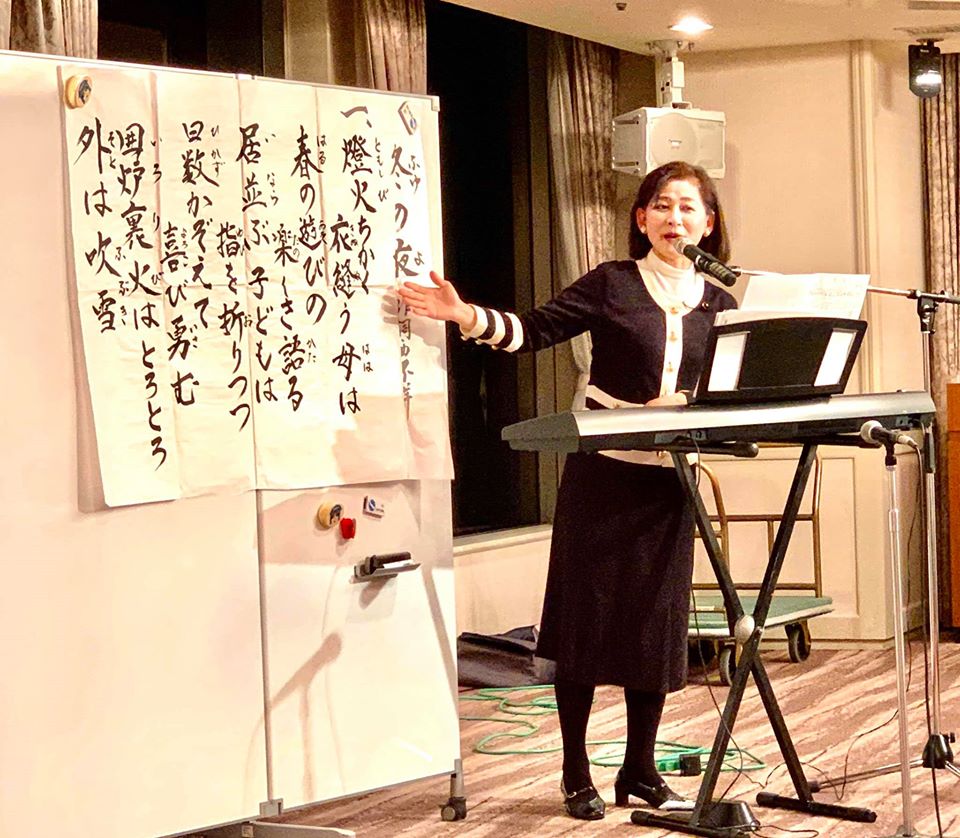 冬の夜
一、燈火ちかく
衣縫う母は
春の遊びの
楽しさ語る
居並ぶ子どもは
指を折りつつ
日数かぞえて
喜び勇む
囲炉裏火はとろとろ
外は吹雪